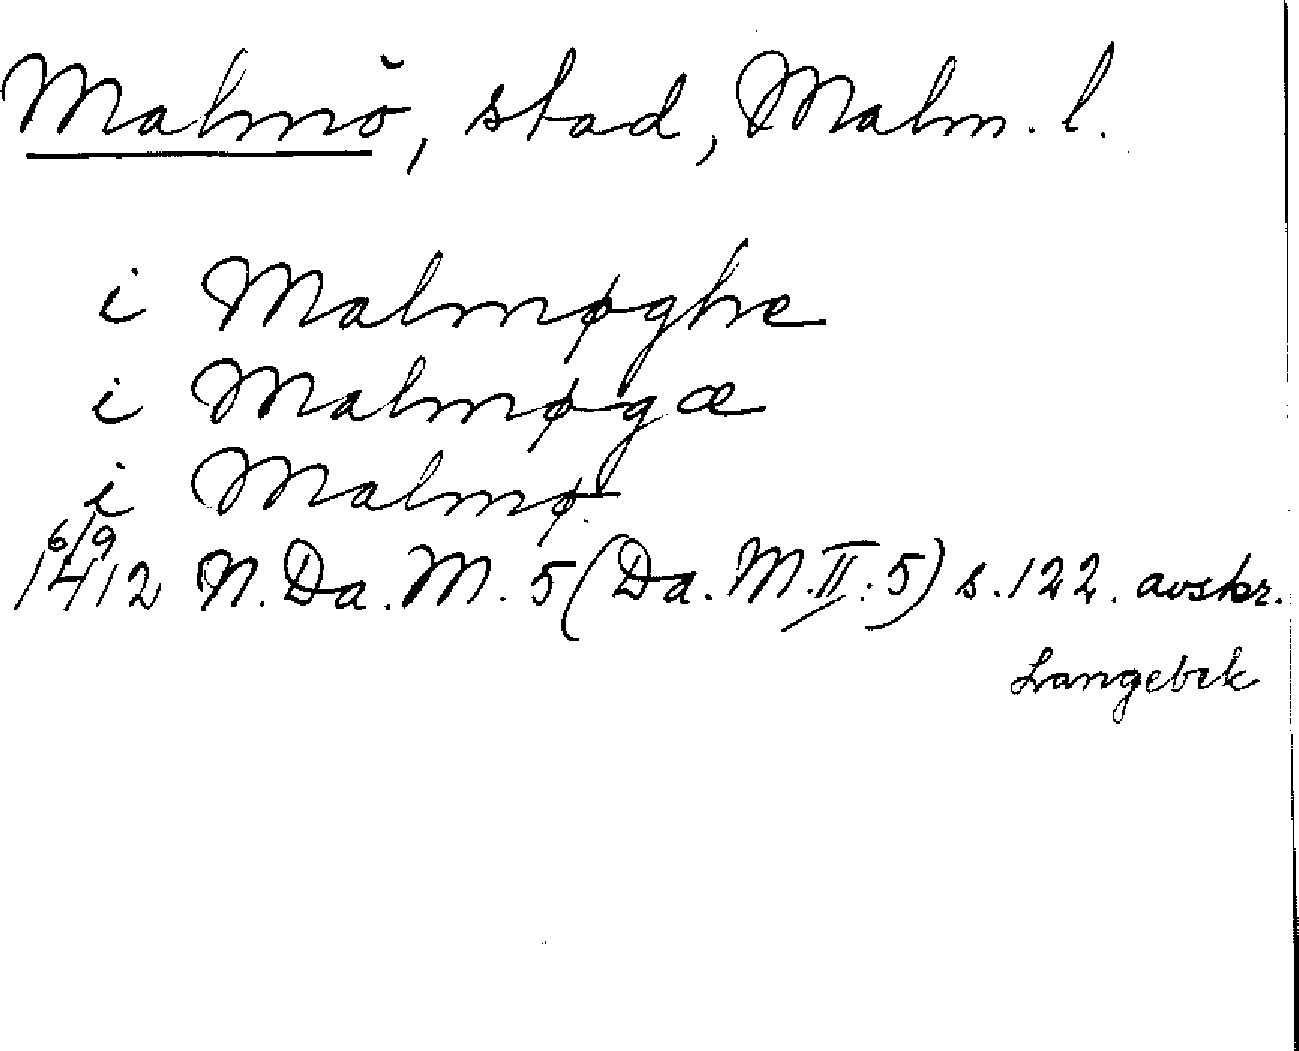 Malmö, stad, Malm. l.
i Malmøghe
i Malmøgæ
i Malmø
6/9
1412 N. Da. M. 5 (Da. M. II. 5) s. 122. avskr.
Langebek